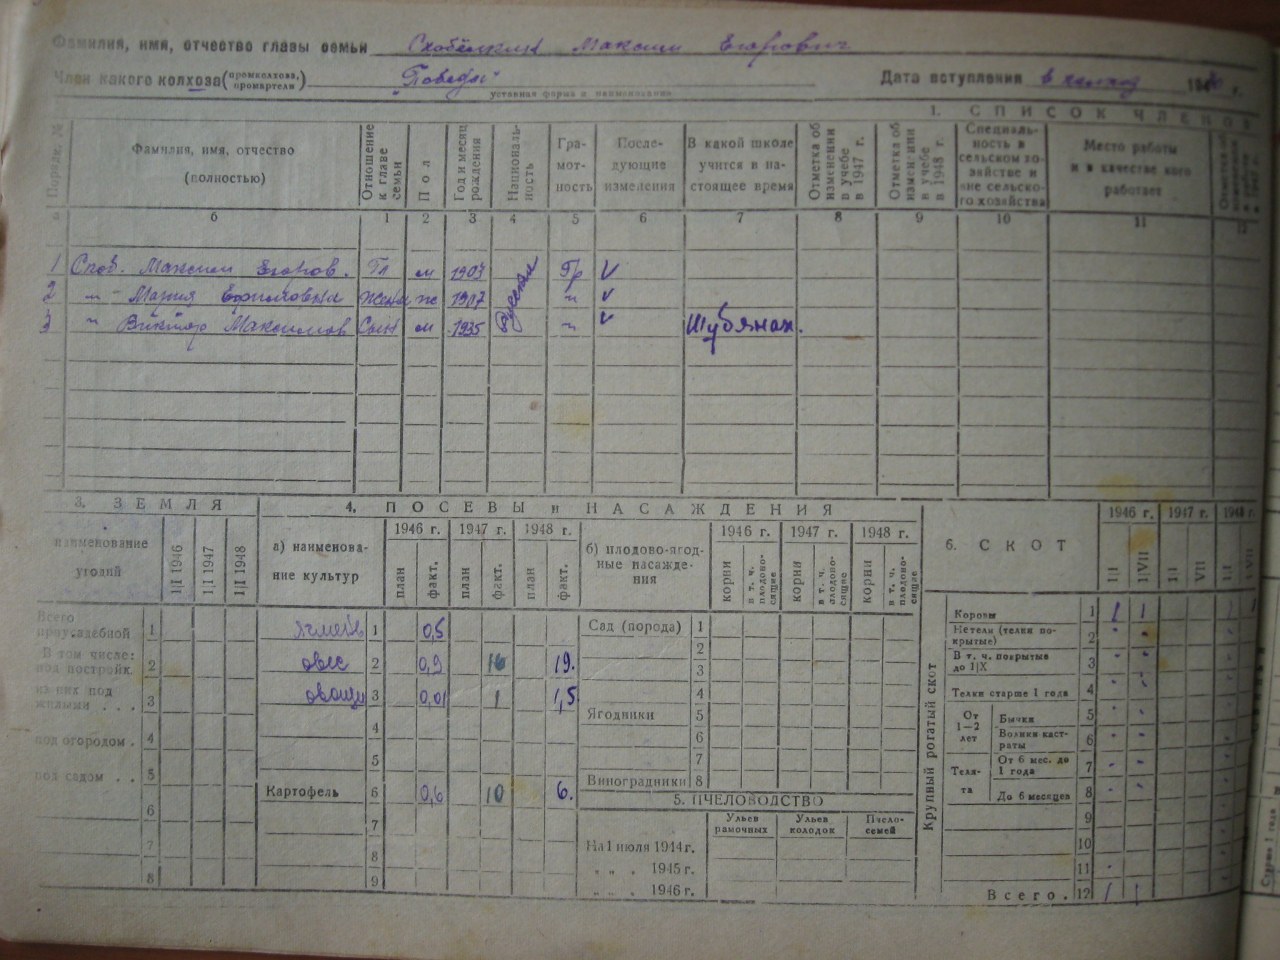 Фамилия, имя, отчество главы семьи Скобёлкин Максим Егорович
Член какого колхоза (промколхоза, промартели) "Победы" Дата вступления в колхоз 194 г.
уставная форма и наименование
1. СПИСОК ЧЛЕНОВ
Порядк. №
Фамилия, имя, отчество (полностью)
Отношение к главе семьи
Пол
Год и месяц рождения
Национальность
Грамотность
Последующие изменения
В какой школе учится в настоящее время
Отметка об изменении в учебе в 1947 г.
Отметка об изменении в учебе в 1948 г.
Специальность в сельском хозяйстве и вне сельского хозяйства
Место работы и в качестве кого работает
а б 1 2 3 4 5 6 7 8 9 10 11 12
1 Скоб. Максим Егоров. Гл м 1903 Русская Гр V
2 -"- Мария Ефимовна жена ж 1907 " V
3 " Виктор Максимов Сын м 1935 " V Шубянах.
3. ЗЕМЛЯ
наименование угодий
1|I 1946
1|I 1947
1|I 1948
Всего приусадебной 1
В том числе: под постройк. 2
из них под жилыми . . . 3
под огородом . 4
под садом . . 5
6
7
8
4. ПОСЕВЫ и НАСАЖДЕНИЯ
а) наименование культур
1946 г. 1947 г. 1948 г.
план факт. план факт. план факт.
ячмень 1 0,5
овес 2 0,9 16 19.
овощи 3 0,01 1 1,5
4
5
Картофель 6 0,6 10 6.
7
8
9
б) плодово-ягодные насаждения
1946 г. 1947 г. 1948 г.
корни в т. ч. плодоносящие корни в т. ч. плодоносящие корни в т. ч. плодоносящие
Сад (порода) 1
2
3
4
Ягодники 5
6
7
Виноградники 8
5. ПЧЕЛОВОДСТВО
Ульев рамочных Ульев колодок Пчелосемей
На 1 июля 1944 г.
" " " 1945 г.
" " " 1946 г.
6. СКОТ
1946 г. 1947 г. 1948 г.
1|I 1|VII 1|I VII 1|I 1|VII
Крупный рогатый скот
Коровы 1 1 1
Нетели (телки покрытые) 2
В т. ч. покрытые до 1|IX 3
Телки старше 1 года 4
От 1—2 лет
Бычки 5
Волики кастраты 6
Телята
От 6 мес. до 1 года 7
До 6 месяцев 8
9
10
11
Всего . 12 1 1
Старше 1 года